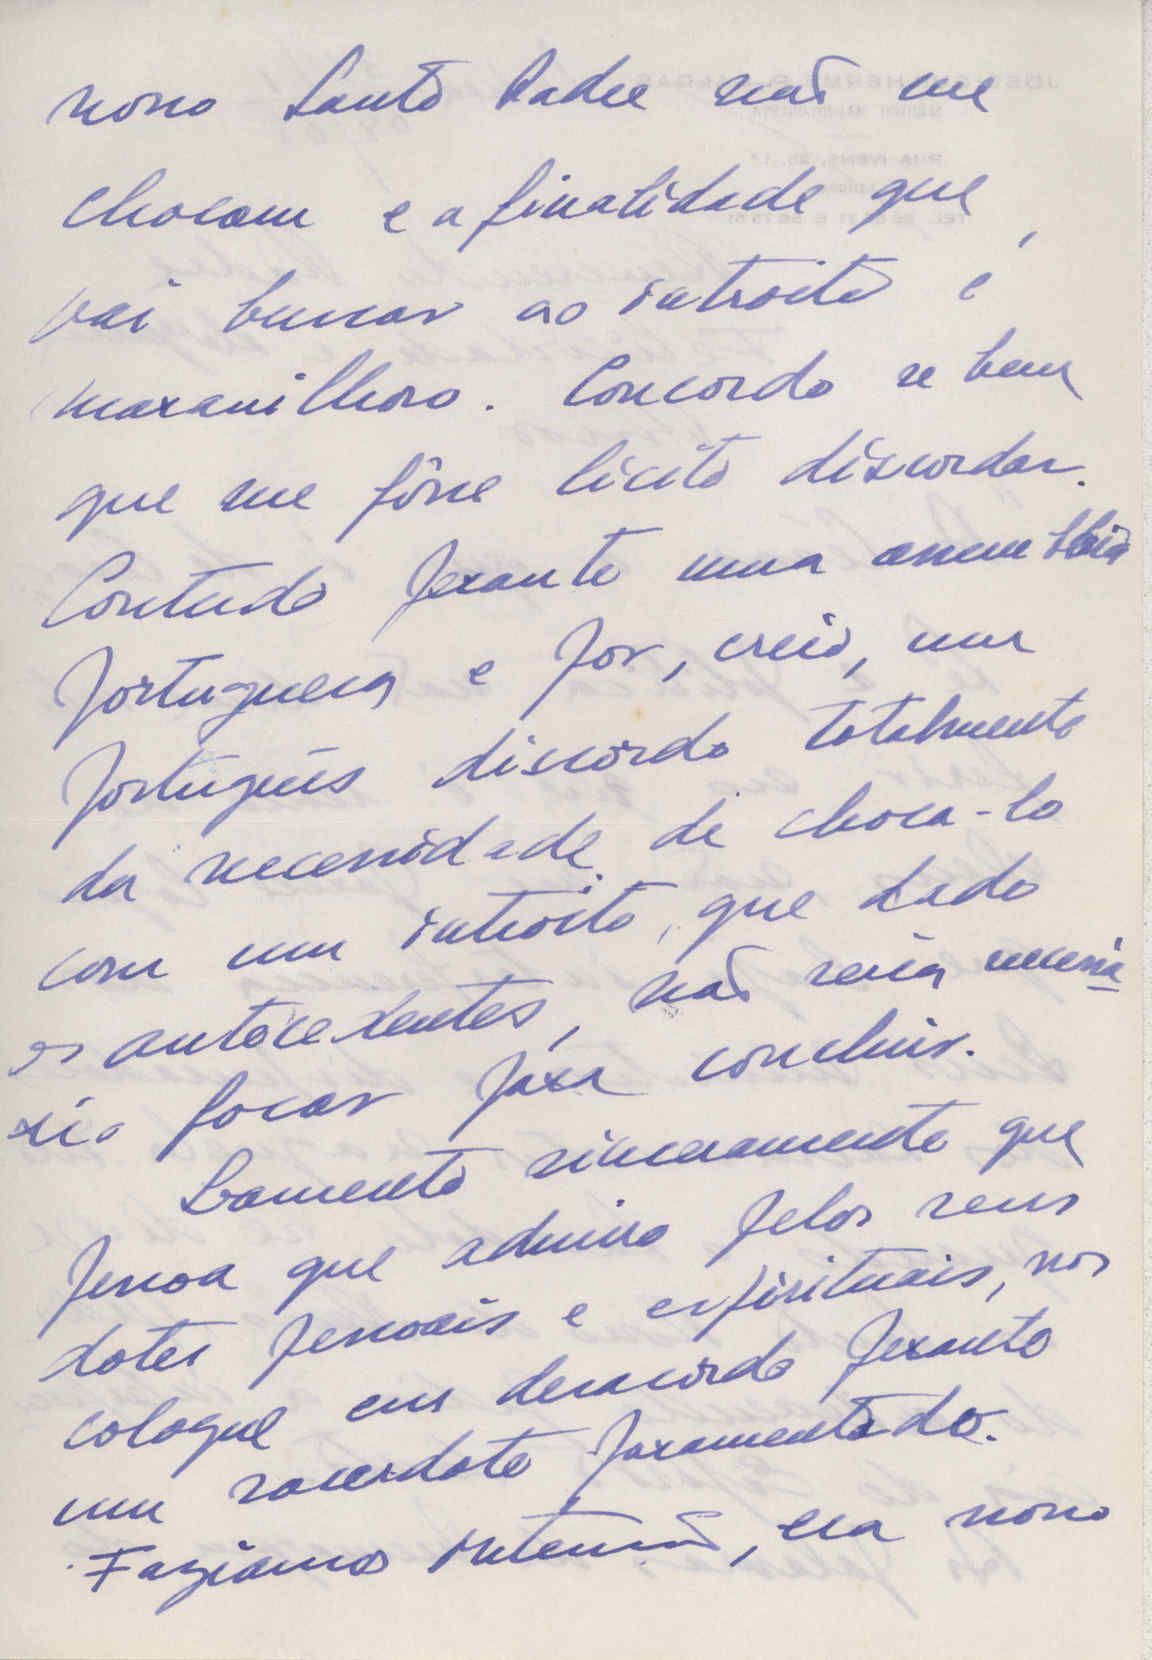 nosso Santo Padre não me
chocam e a finalidade que
vai buscar ao introito é
maravilhoso. Concordo se bem
que me fôsse licito discordar.
Contudo perante uma assembleia
portuguesa e por, creio, um
português discordo totalmente
da necessidade de choca-lo
com um introito, que dado
os antecedentes, não seria necessá
rio focar para concluir.
Lamento sinceramente que
pessoa que admiro pelos seus
dotes pessoais e espirituais, nos
coloque em desacordo perante
um sacerdote paramentado.
Faziamos intenção, era nosso